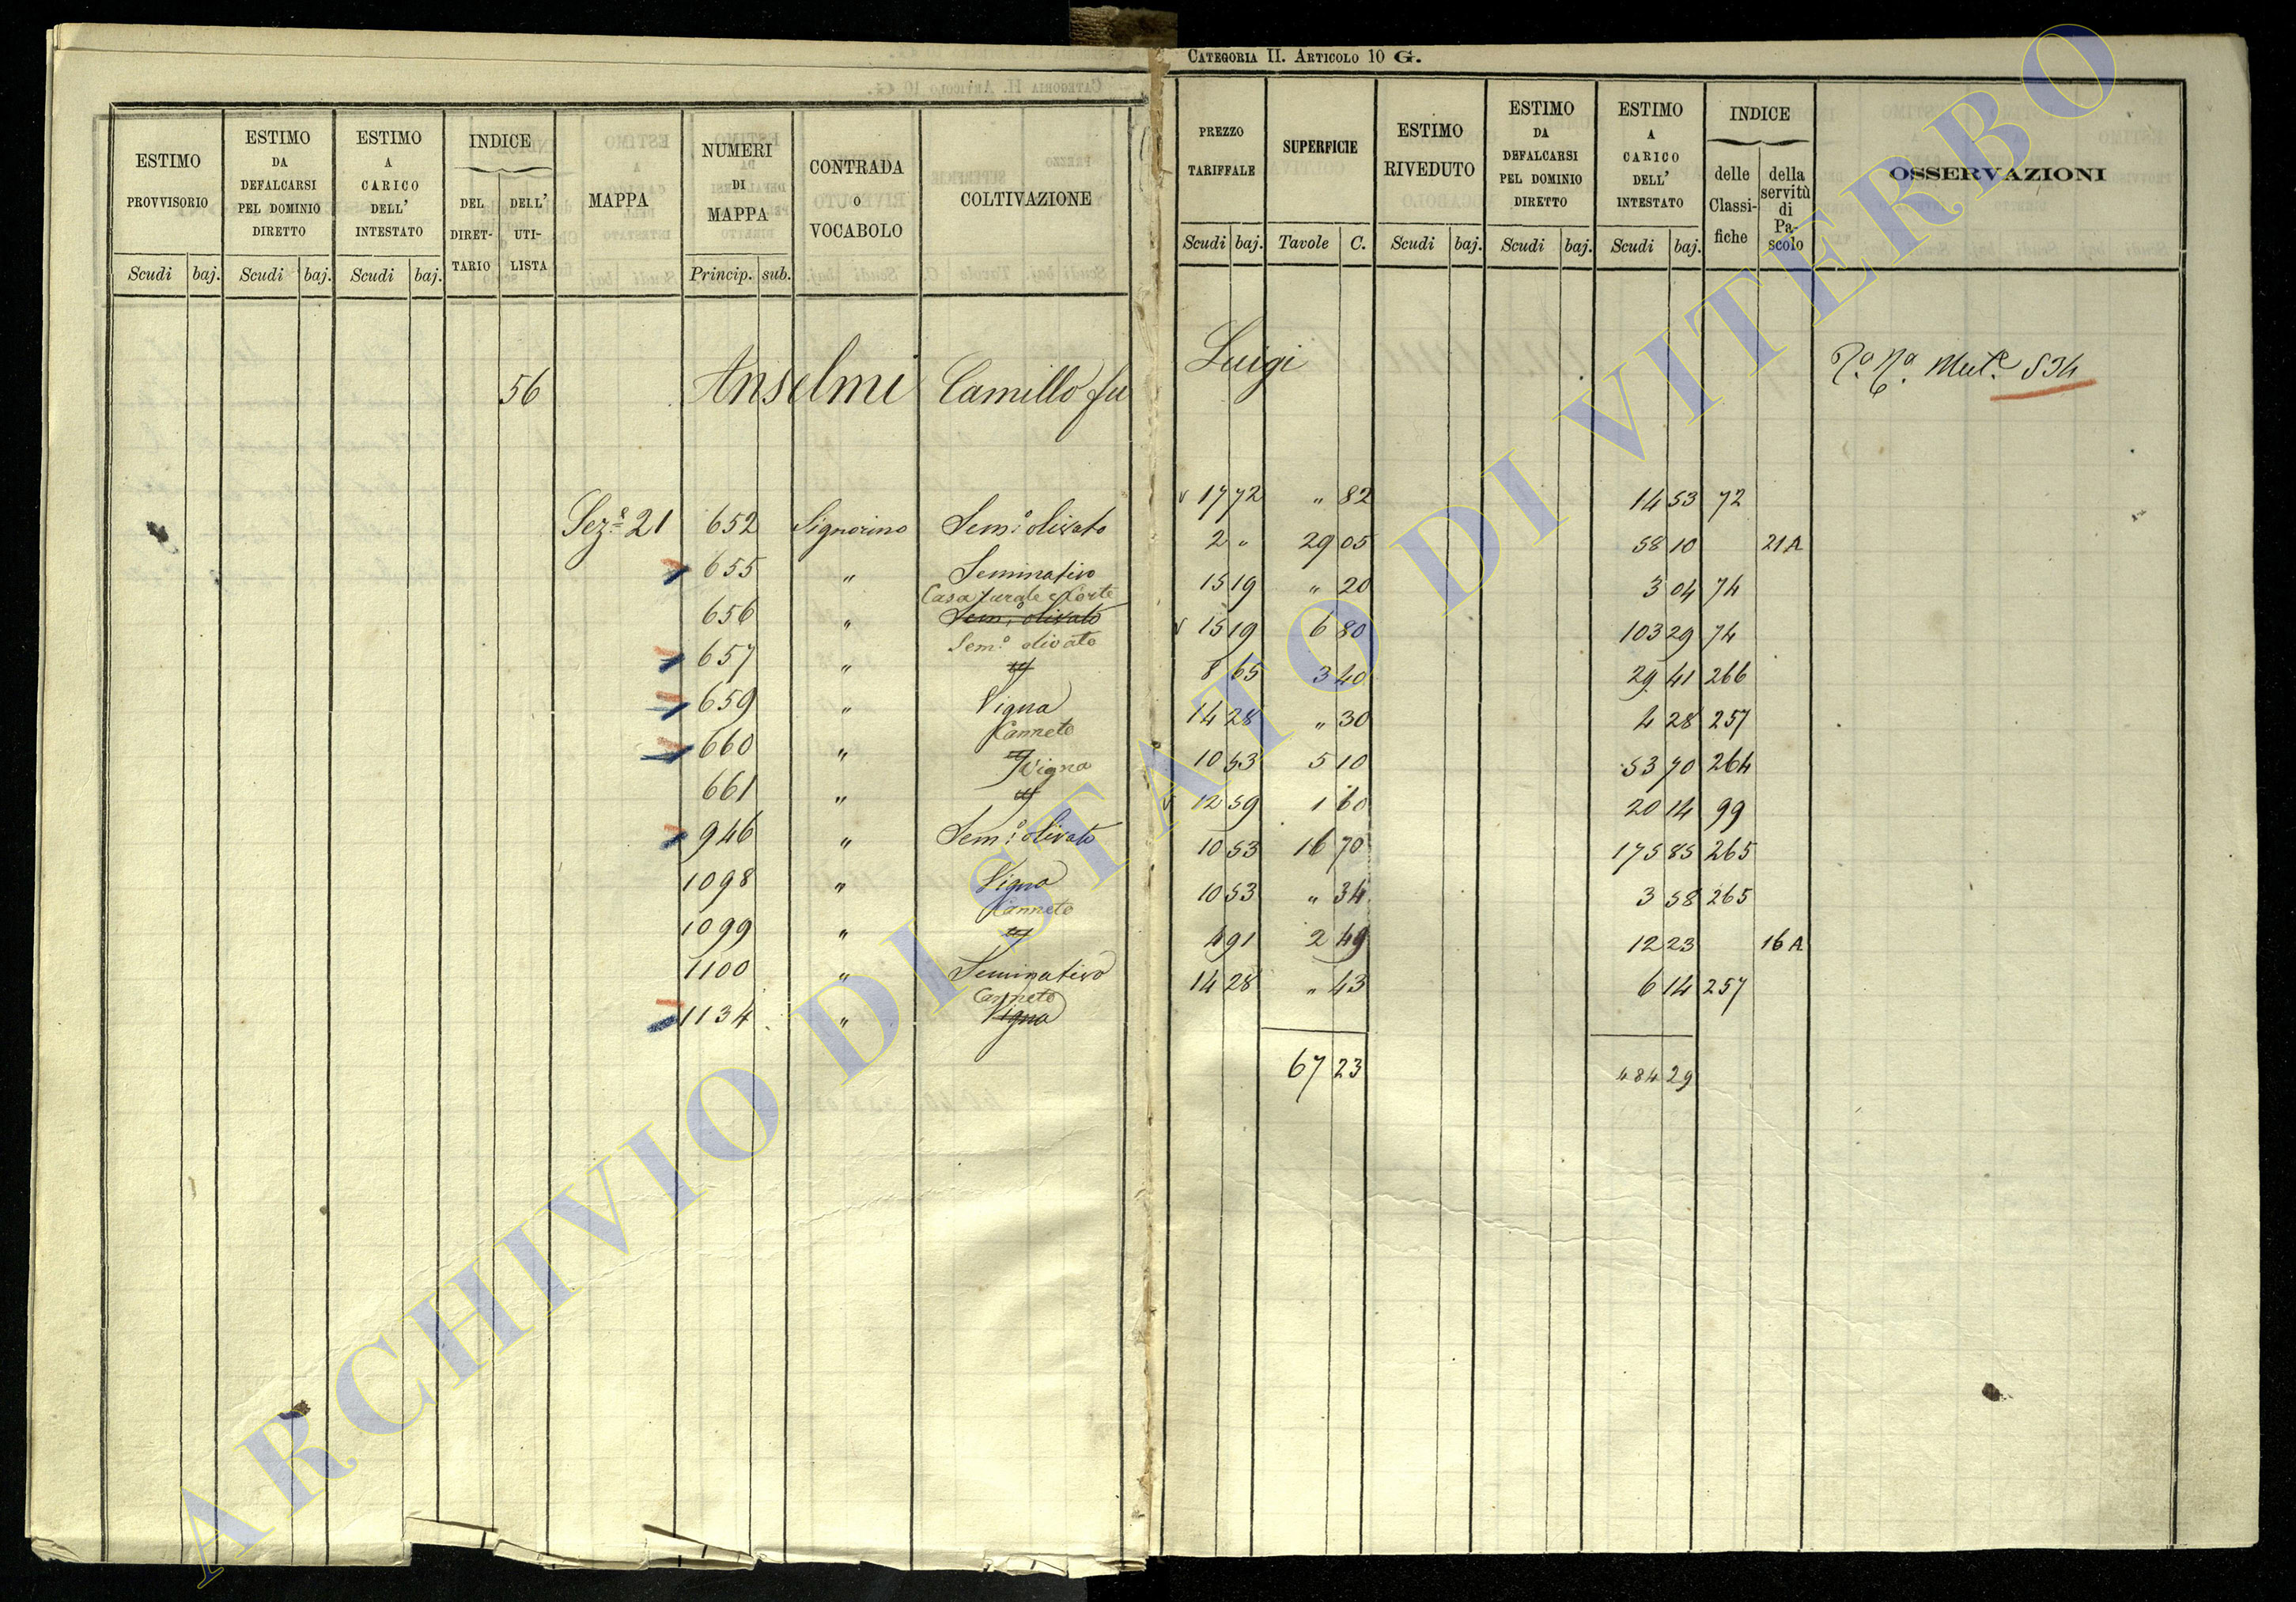 CATEGORIA II. ARTICOLO 10 G.
ESTIMO PROVVISORIO Scudi baj.
ESTIMO DA DEFALCARSI PEL DOMINIO DIRETTO Scudi baj.
ESTIMO A CARICO DELL' INTESTATO Scudi baj.
INDICE DEL DIRET-TARIO DELL' UTI-LISTA
MAPPA
NUMERI DI MAPPA Princip. sub.
CONTRADA O VOCABOLO
COLTIVAZIONE
PREZZO TARIFFALE Scudi baj.
SUPERFICIE Tavole C.
ESTIMO RIVEDUTO Scudi baj.
ESTIMO DA DEFALCARSI PEL DOMINIO DIRETTO Scudi baj.
ESTIMO A CARICO DELL' INTESTATO Scudi baj.
INDICE delle Classi-fiche della servitù di Pa-scolo
OSSERVAZIONI
56 Anselmi Camillo fu Luigi Mut.e 534
Sez.e 21 652 Signorino Sem.o olivato 17 72 " 82 14 53 72
655 " Seminativo 2 " 29 05 58 10 21A
656 " Casa rurale e Corte Sem.o olivato 15 19 " 20 3 04 74
657 " Sem.o olivato 15 19 6 80 103 29 74
659 " Vigna 8 65 3 40 29 41 266
660 " Canneto 14 28 " 30 4 28 257
661 " Vigna 10 53 5 10 53 70 264
946 " Sem.o olivato 12 59 1 60 20 14 99
1098 " Vigna 10 53 16 70 175 85 265
1099 " Canneto 10 53 " 34 3 58 265
1100 " Seminativo 4 91 2 49 12 23 16A
1134 " Canneto Vigna 14 28 " 43 6 14 257
67 23 484 29
ARCHIVIO DI STATO DI VITERBO